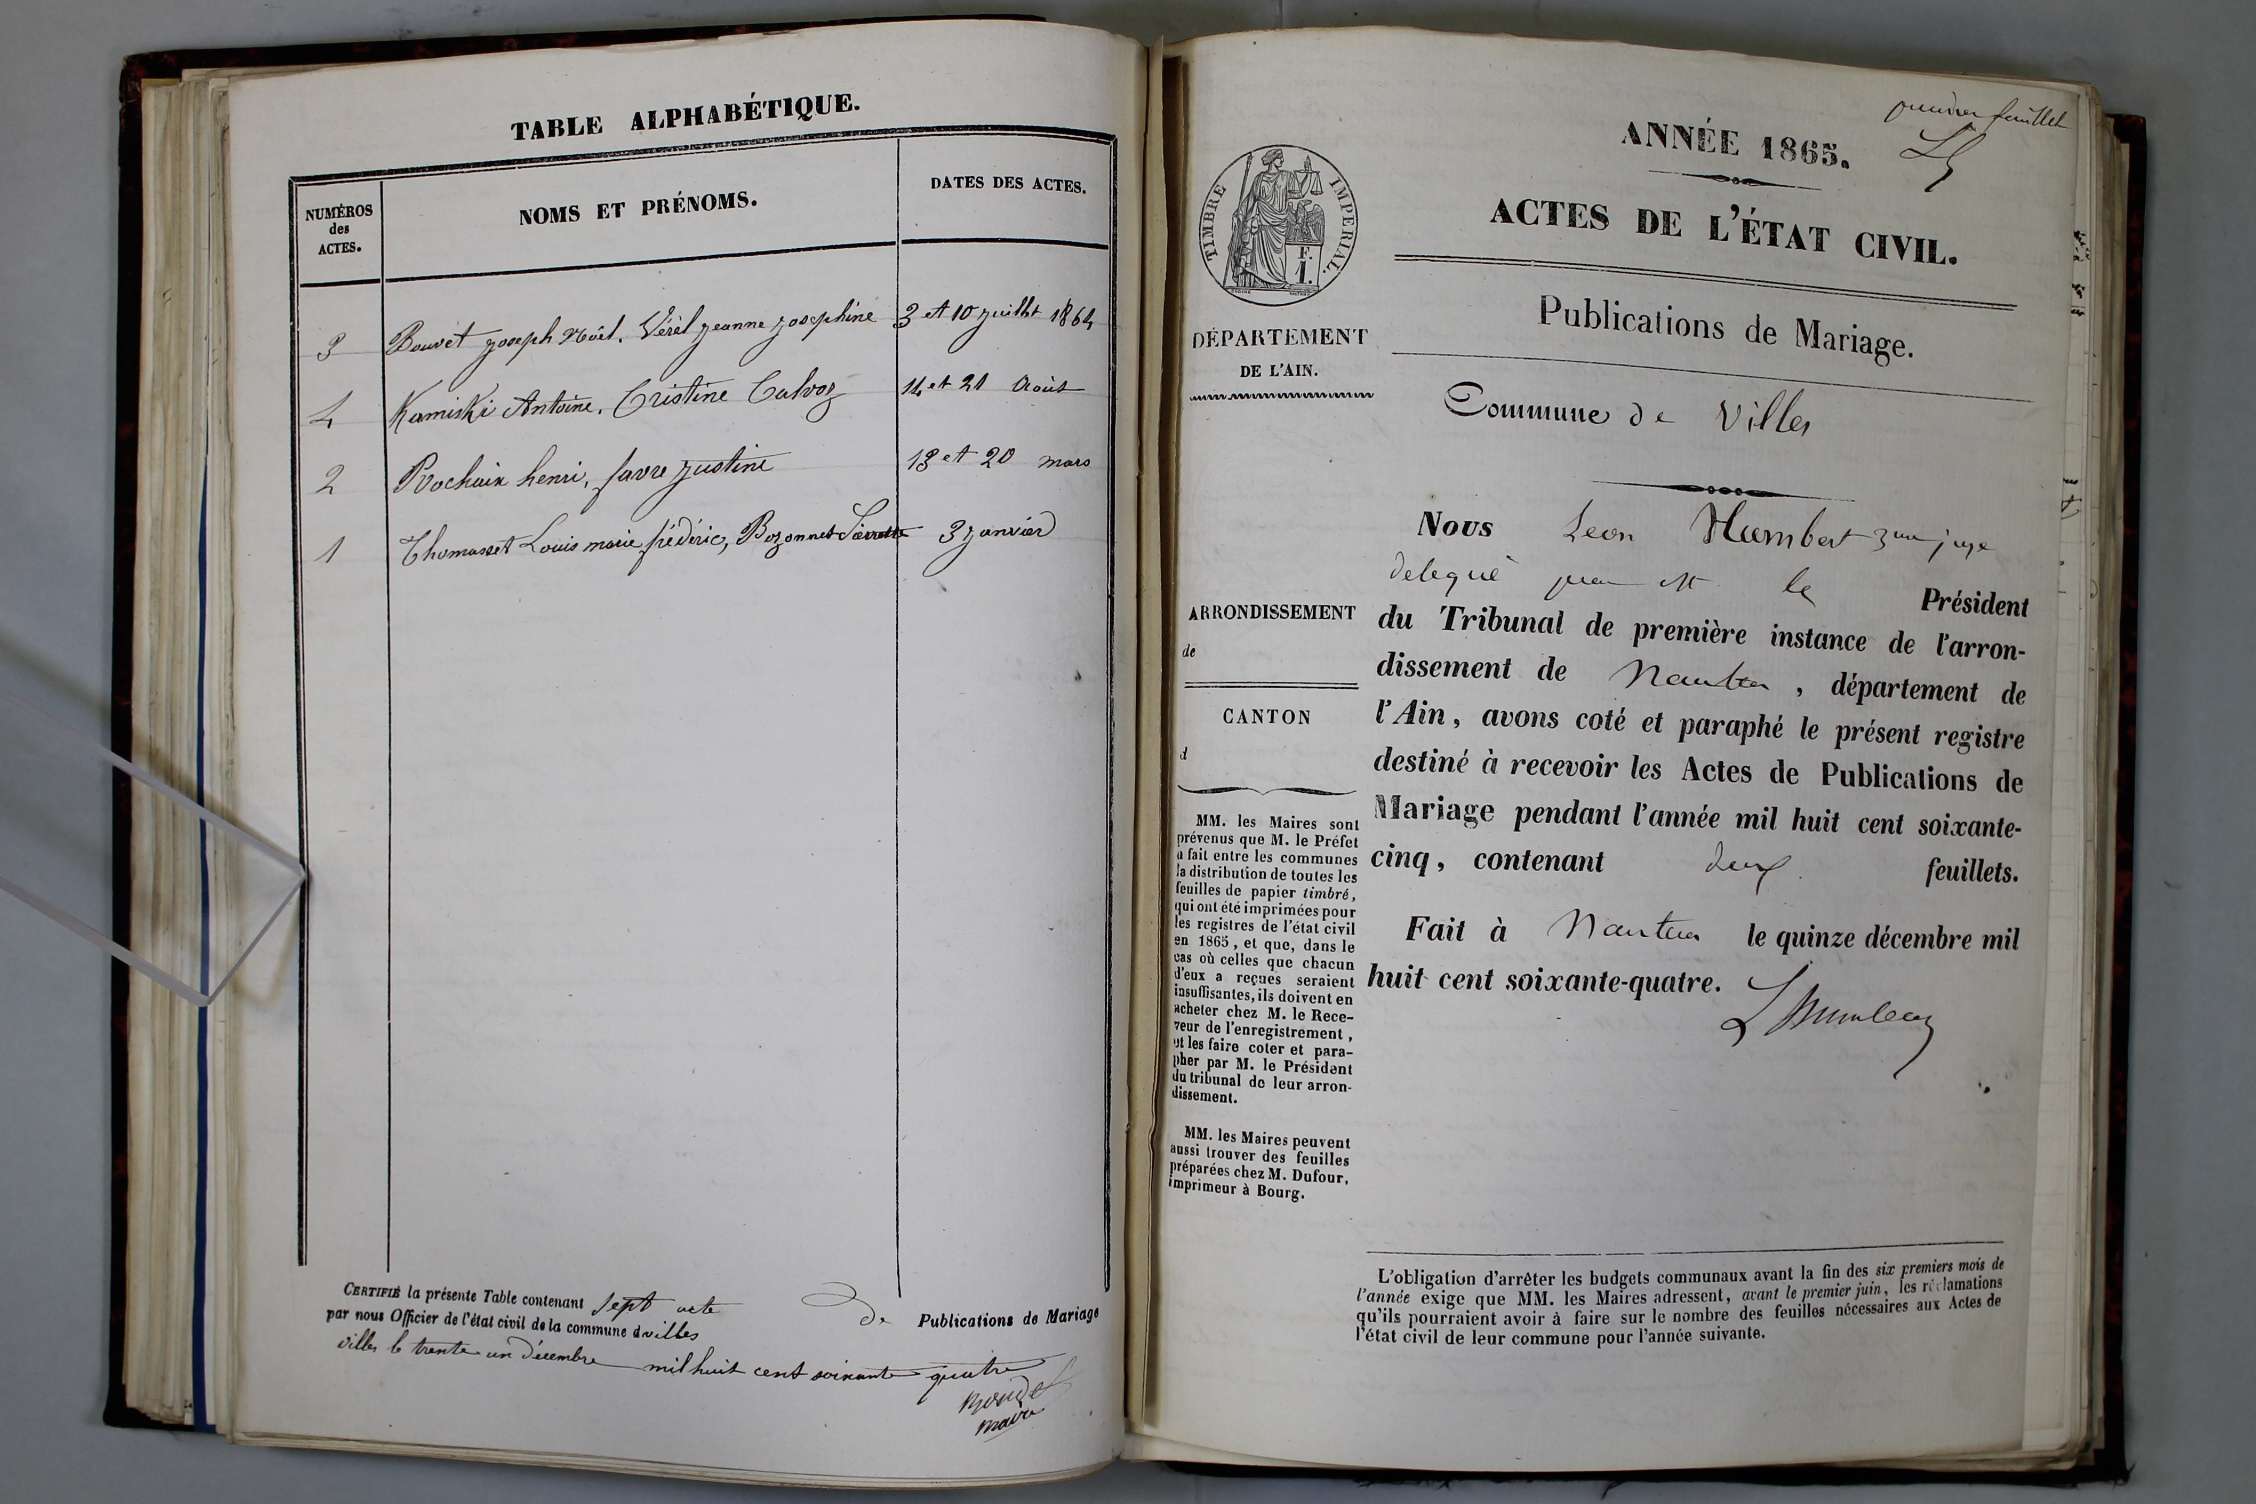 TABLE ALPHABÉTIQUE.
NUMÉROS
des
ACTES.
NOMS ET PRÉNOMS.
DATES DES ACTES.
3 Bouvet joseph Noël, Vérèl jeanne josephine 3 et 10 juillet 1864
4 Kamiski Antoine, Cristine Calvoz 14 et 21 Août
2 Rochaix henri, favre justine 13 et 20 mars
1 Thomasset Louis marie frédéric, Bozonnet Pierrette 3 janvier
CERTIFIÉ la présente Table contenant sept acte de Publications de Mariage
par nous Officier de l'état civil de la commune d villes
villes le trente un décembre mil huit cent soixante quatre
maire
premier feuillet
ANNÉE 1865.
ACTES DE L'ÉTAT CIVIL.
TIMBRE IMPERIAL.
F.
1.
Publications de Mariage.
DÉPARTEMENT
DE L'AIN.
Commune de Villes
Nous Leon Humbert 3me juge
delegué le Président
du Tribunal de première instance de l'arron-
dissement de Nantua, département de
l'Ain, avons coté et paraphé le présent registre
destiné à recevoir les Actes de Publications de
Mariage pendant l'année mil huit cent soixante-
cinq, contenant deux feuillets.
Fait à Nantua le quinze décembre mil
huit cent soixante-quatre.
L Humbert
ARRONDISSEMENT
de
CANTON
d
MM. les Maires sont
prévenus que M. le Préfet
a fait entre les communes
la distribution de toutes les
feuilles de papier timbré,
qui ont été imprimées pour
les registres de l'état civil
en 1865, et que, dans le
cas où celles que chacun
d'eux a reçues seraient
insuffisantes, ils doivent en
acheter chez M. le Rece-
veur de l'enregistrement,
et les faire coter et para-
pher par M. le Président
du tribunal de leur arron-
dissement.
MM. les Maires peuvent
aussi trouver des feuilles
préparées chez M. Dufour,
imprimeur à Bourg.
L'obligation d'arrêter les budgets communaux avant la fin des six premiers mois de
l'année exige que MM. les Maires adressent, avant le premier juin, les réclamations
qu'ils pourraient avoir à faire sur le nombre des feuilles nécessaires aux Actes de
l'état civil de leur commune pour l'année suivante.